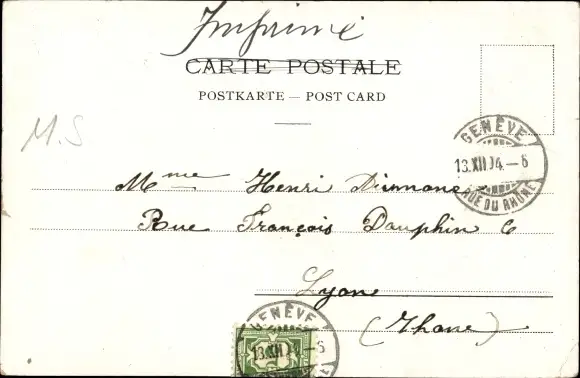 Imprimé
CARTE POSTALE
POSTKARTE — POST CARD
M.S
GENÈVE
13.XII.04.–6
RUE DU RHÔNE
Mme Henri
Rue François Dauphin 6
Lyon
(Rhone)
GENÈVE
13.XII
–6